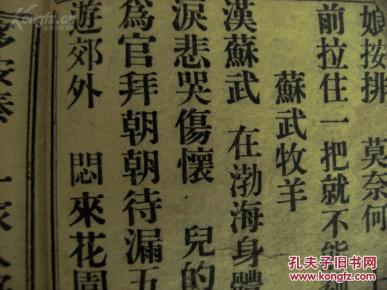 娘按排 莫奈何
前拉住一把就不能
蘇武牧羊
漢蘇武 在渤海身體
淚悲哭傷懷 兒的
為官拜朝朝待漏五
遊郊外 悶來花園
孔夫子旧书网